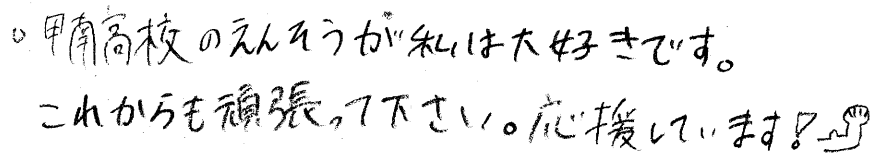 。甲南高校のえんそうが私は大好きです。
これからも頑張って下さい。応援しています！